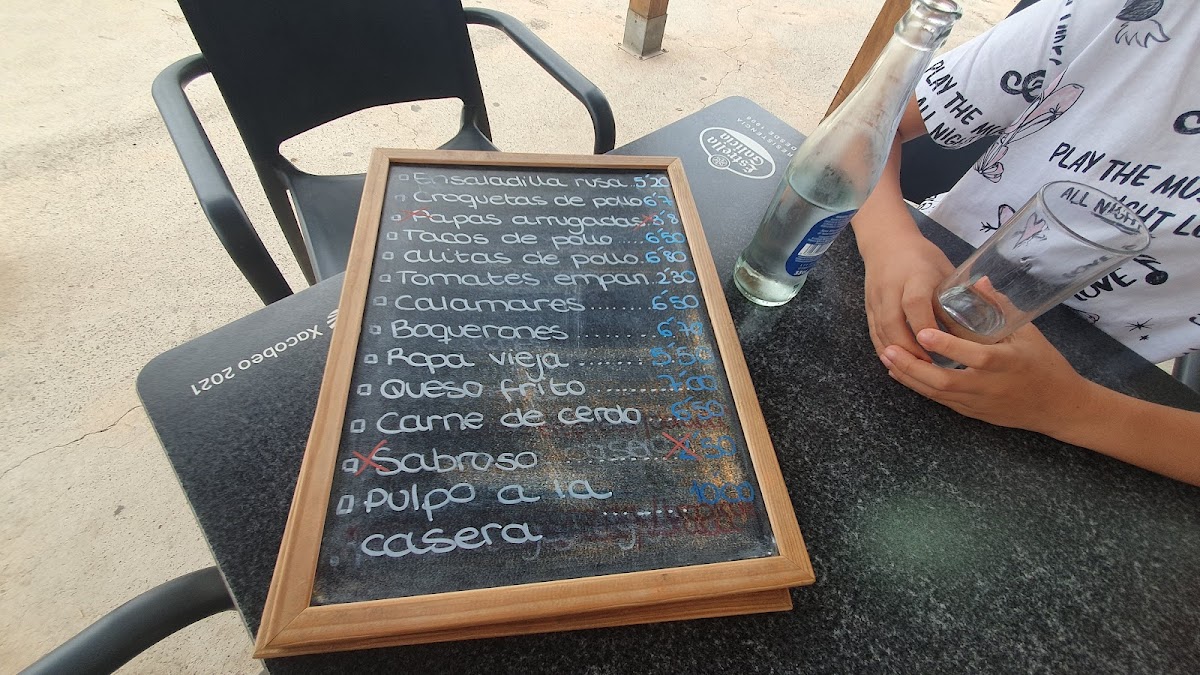 Ensaladilla rusa..5'20
Croquetas de pollo 6'7
Papas arrugadas
Tacos de pollo .... 6'50
alitas de pollo. 6'80
Tomates empan. 2'30
Calamares ....... 6'50
Boquerones ........ 6'70
Ropa vieja ........ 5'50
Queso frito ........ 7'00
Carne de cerdo ... 6'50
Sabroso
Pulpo a la ........ 10'00
casera
Estrella
Galicia
RESISTENCIA
DESDE 1906
Xacobeo 2021
PLAY THE MUSIC
ALL NIGHT
PLAY THE MU
ALL NIGHT